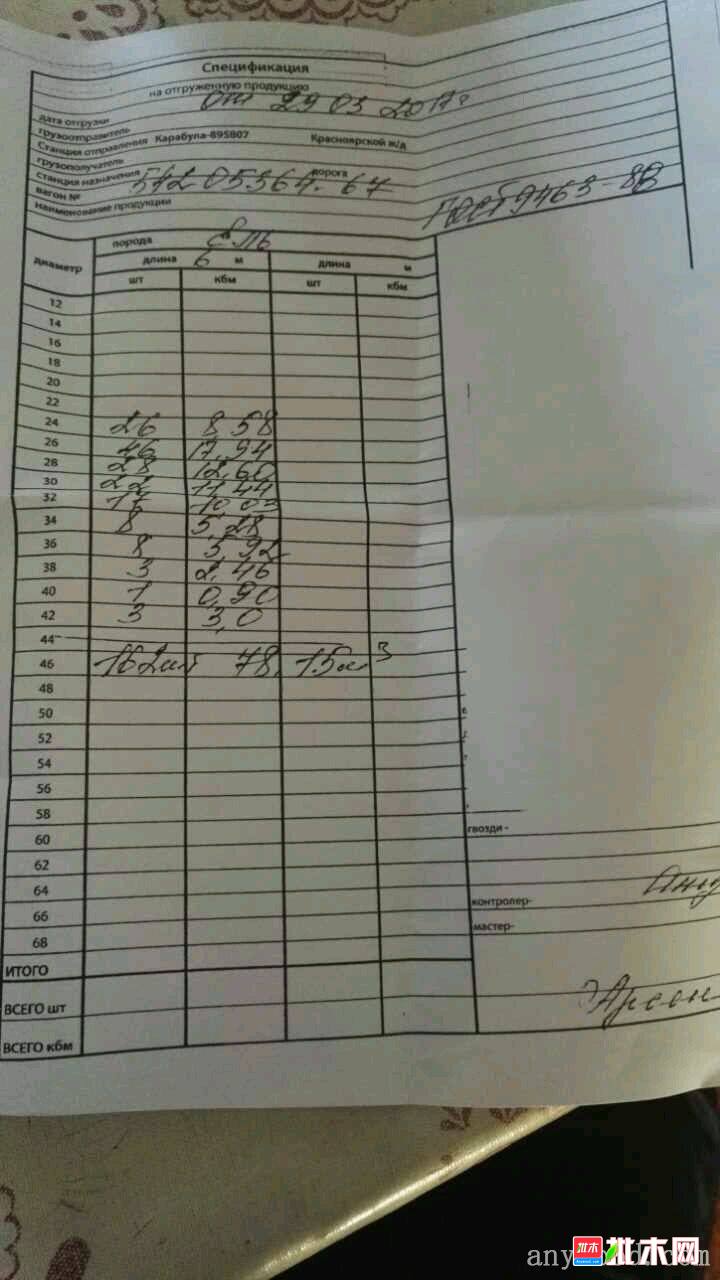 Спецификация
на отгруженную продукцию
дата отгрузки от 29 03 2017г
грузоотправитель
Станция отправления Карабула-895807 Красноярской ж/д
грузополучатель
станция назначения дорога
вагон №
наименование продукции ГОСТ 9463-88
порода Ель
диаметр длина 6 м длина м
шт кбм шт кбм
12
14
16
18
20
22
24 26 8,58
26 46 17,94
28 28 12,60
30 22 11,44
32 17 10,03
34 8 5,28
36 8 5,92
38 3 2,46
40 1 0,90
42 3 3,0
44
46 162шт 78,15м3
48
50
52
54
56
58
60
62
64
66
68
ИТОГО
ВСЕГО шт
ВСЕГО кбм
гвозди -
контролер-
мастер-
批木
批木网